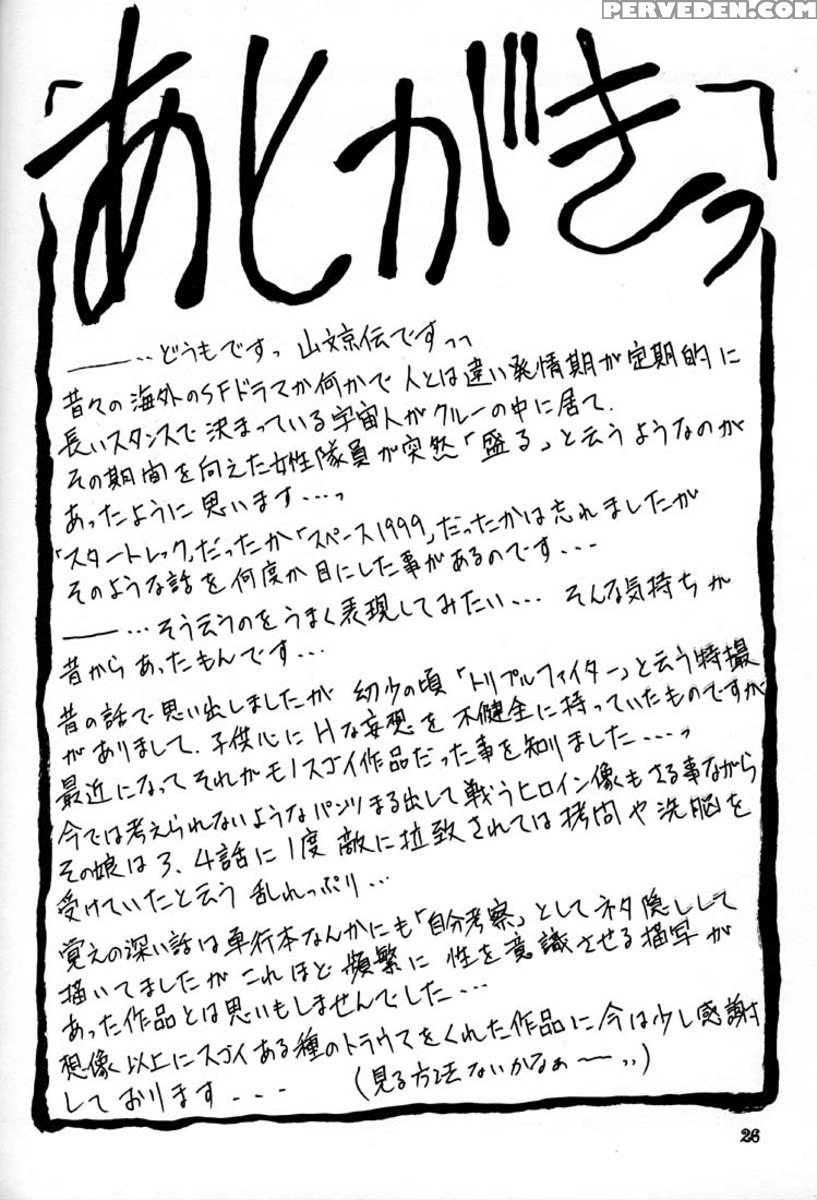 PERVEDEN.COM
「あとがきっ」
――‥どうもですっ 山文京伝ですっっ
昔々の海外のSFドラマか何かで人とは違い発情期が定期的に
長いスタンスで決まっている宇宙人がクルーの中に居て、
その期間を向えた女性隊員が突然「盛る」と云うようなのが
あったように思います…っ
「スタートレック」だったか「スペース1999」だったかは忘れましたが
そのような話を何度か目にした事があるのです…
――…そう云うのをうまく表現してみたい… そんな気持ちが
昔からあったもんです…
昔の話で思い出しましたが 幼少の頃「トリプルファイター」と云う特撮
がありまして、子供心にHな妄想を不健全に持っていたものですが
最近になってそれがモノスゴイ作品だった事を知りました…っ
今では考えられないようなパンツまる出しで戦うヒロイン像もさる事ながら
その娘は3、4話に1度敵に拉致されては拷問や洗脳を
受けていたと云う乱れっぷり…
覚えの深い話は単行本なんかにも「自分考察」としてネタ隠しして
描いてましたがこれほど頻繁に性を意識させる描写が
あった作品とは思いもしませんでした…
想像以上にスゴイある種のトラウマをくれた作品に今は少し感謝
しております… (見る方法ないかなぁ〜‥)
26